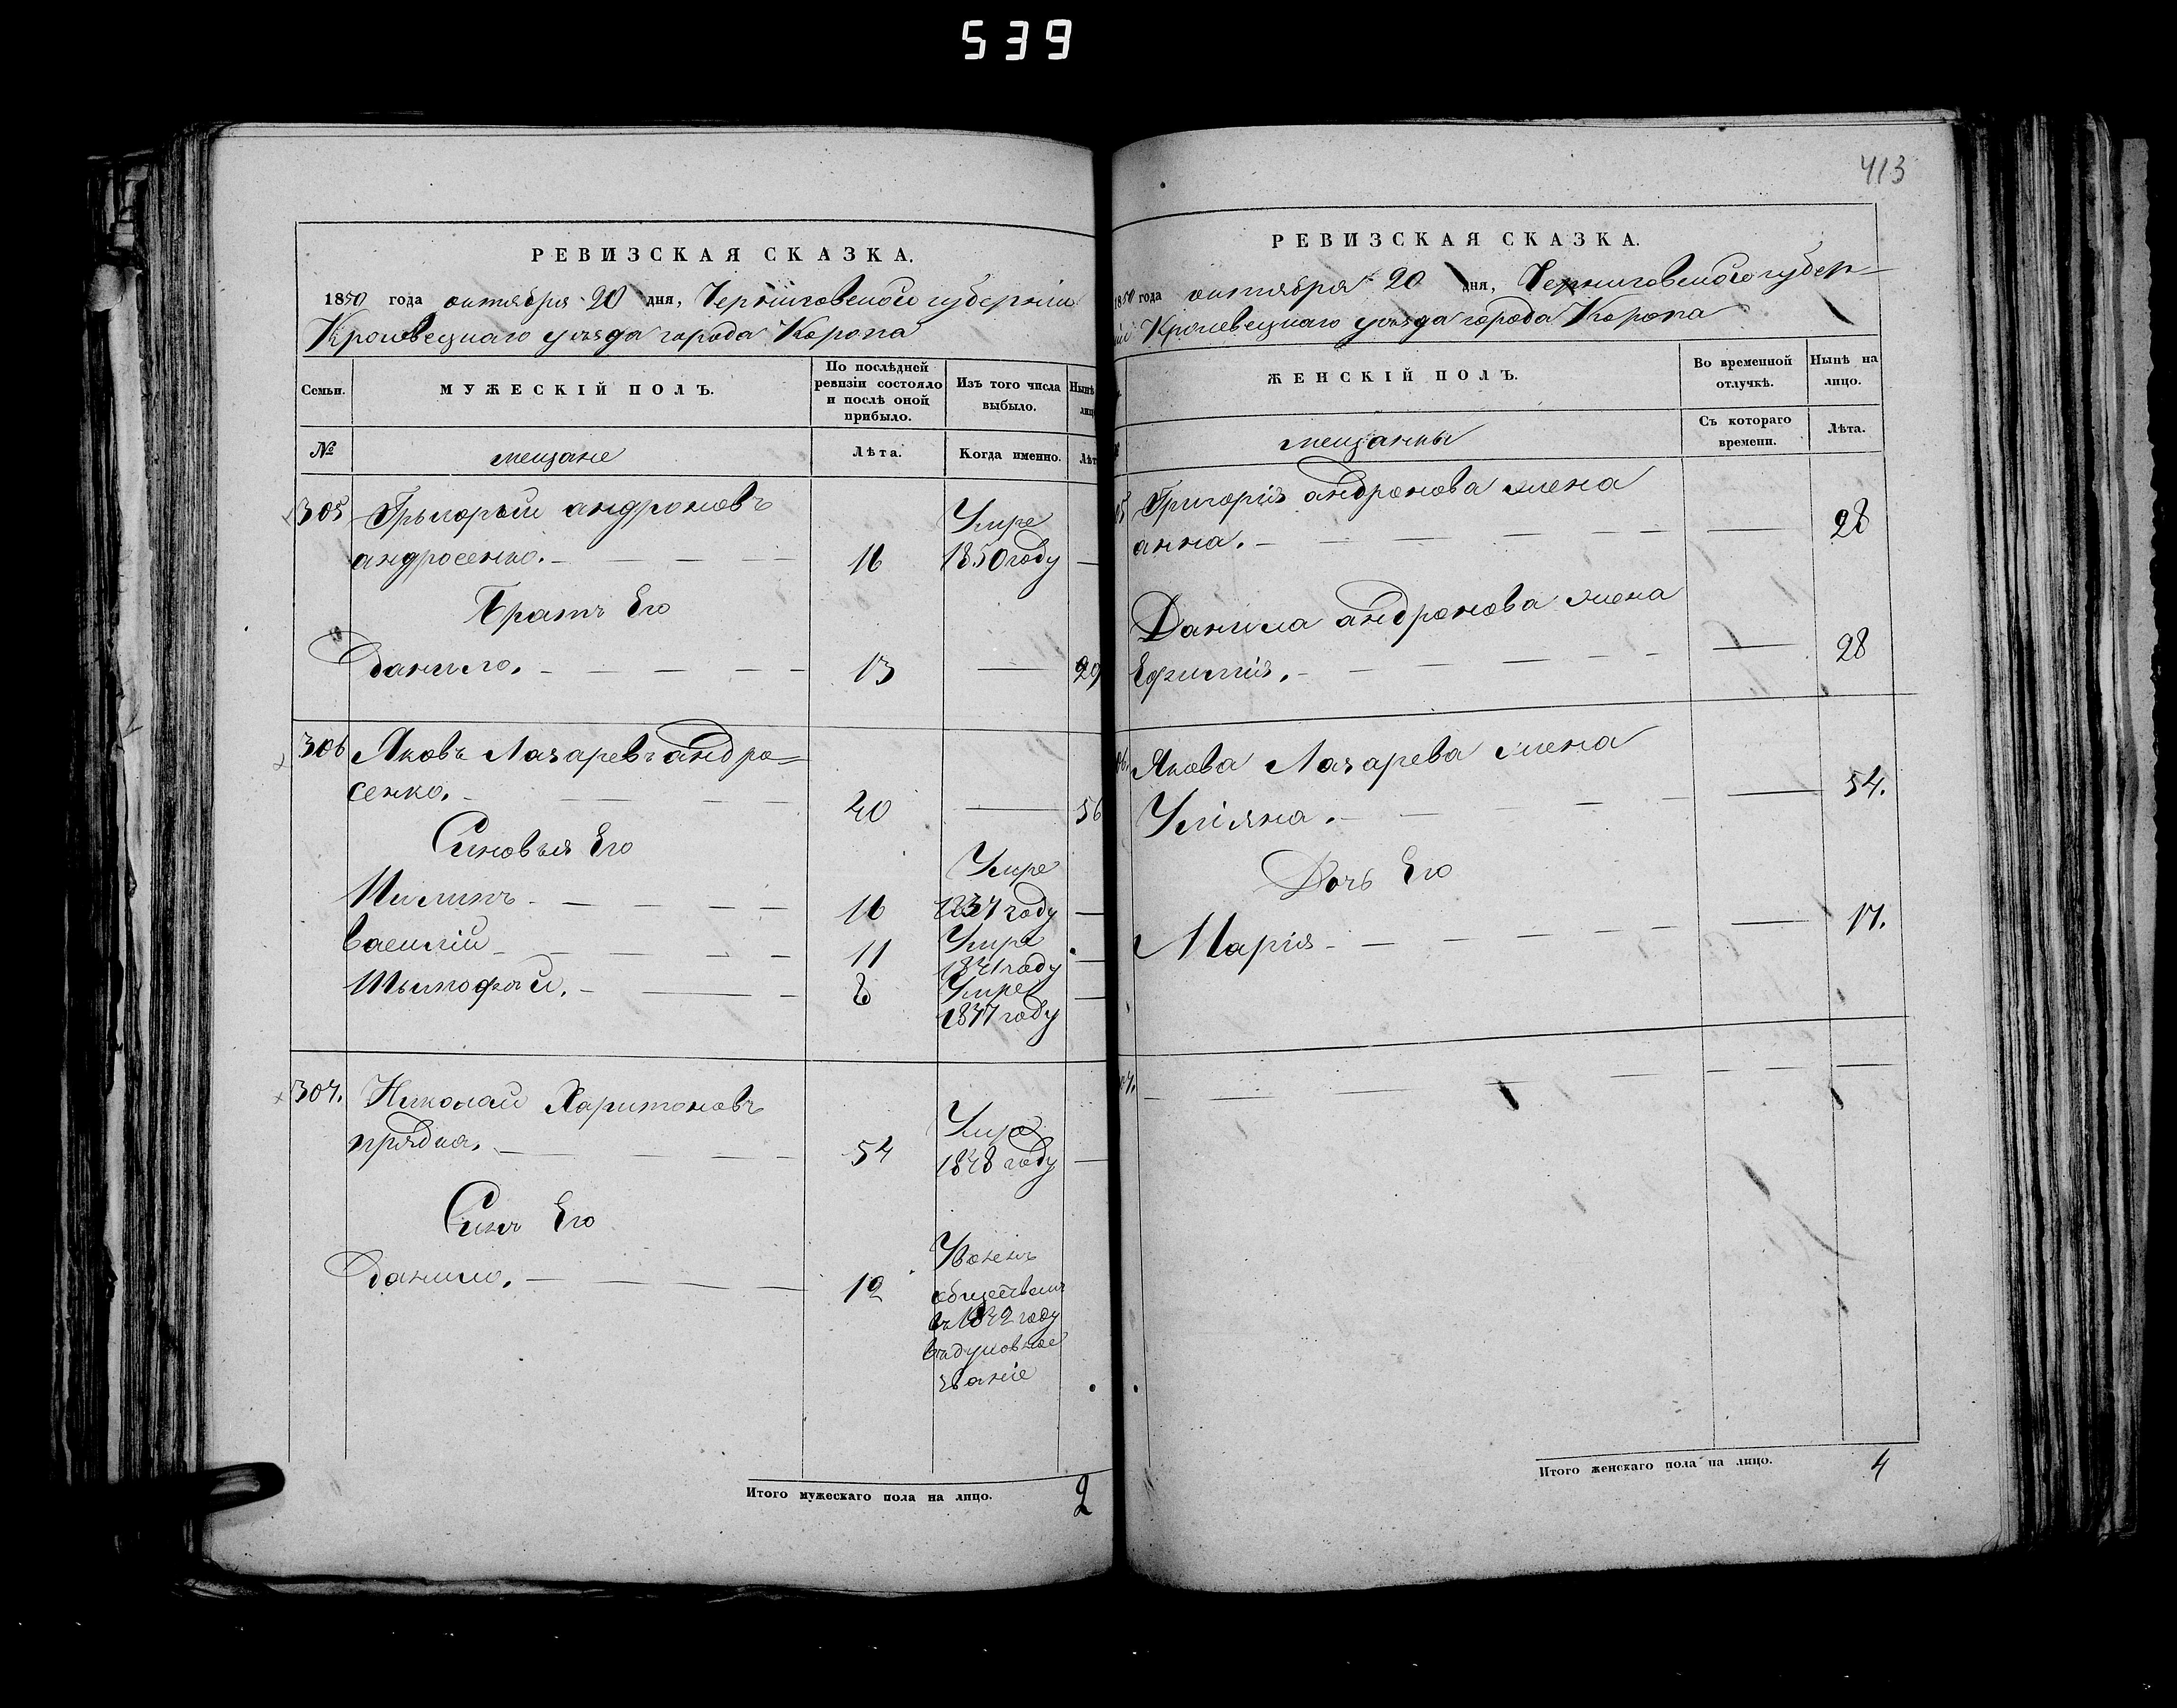 539
413
РЕВИЗСКАЯ СКАЗКА.
1850 года октября 20 дня, Черниговской губерніи
Кролевецкаго уезда города Коропа
Семьи.
МУЖЕСКІЙ ПОЛЪ.
По послѣдней
ревизіи состояло
и послѣ оной
прибыло.
Изъ того числа
выбыло.
Нынѣ
лиц
№
мещане
Лѣта.
Когда именно.
Лѣт
305 Грыгорый андроновъ
Умре
андросенко. 16 1850 году
Братъ Его
данило. 13 29
306 Яковъ Лазаревъ андро=
сенко. 20 56
Синовья Его
Умре
Филипъ 16 1837 году
василій 11 Умре
1841 году
Тымофѣй. 8 Умре
1847 году
307. Николай Харитоновъ
Умре
прядка. 54 1848 году
Синъ Его
данило. 12 Уволенъ
обществомъ
въ 1842 году
въ духовное
званіе
Итого мужескаго пола на лицо. 2
РЕВИЗСКАЯ СКАЗКА.
1850 года октября 20 дня, Черниговской губер=
ніи Кролевецкаго уезда города Коропа
ЖЕНСКІЙ ПОЛЪ.
Во временной
отлучкѣ.
Нынѣ на
лицо.
мещанки
Съ котораго
времени.
Лѣта.
05 Григорія андронова жена
анна. 28
Данила андронова жена
Ефимія. 28
06. Якова Лазарева жена
Уліяна. 54.
Дочь Его
Марія 17.
07.
Итого женскаго пола на лицо. 4